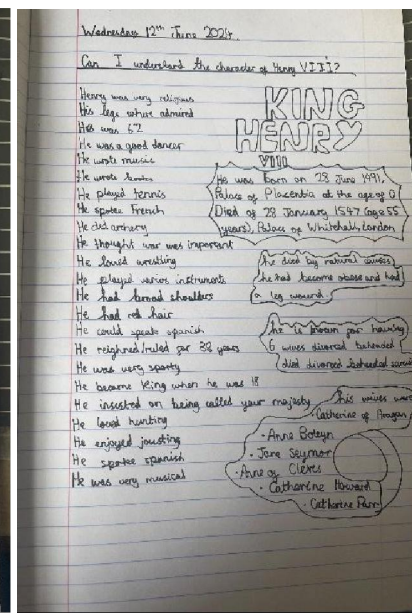 Wednesday 12th June 2024.
Can I understand the character of Henry VIII?
Henry was very religious
His legs where admired
He was 6'2
He was a good dancer
He wrote music
He wrote books
He played tennis
He spoke French
He did archery
He thought war was important
He loved wrestling
He played varies instruments
He had broad shoulders
He had red hair
He could speak spanish
He reighned/ruled for 38 years
He was very sporty
He became King when he was 18
He insisted on being called your majesty
He loved hunting
He enjoyed jousting
He spoke spanish
He was very musical
KING
HENRY
VIII
He was born on 28 June 1491,
Palace of Placentia at the age of 0
Died of 28 January 1547 (age 55
years), Palace of Whitehall, London
he died by natural causes
he had become obese and had
a leg wound
he is known for having
6 wives divorced beheaded
died divorced beheaded
his wives were
Catherine of Aragon
· Anne Boleyn
· Jane Seymor
· Anne of Cleves
· Catherine Howard
· Catherine Parr